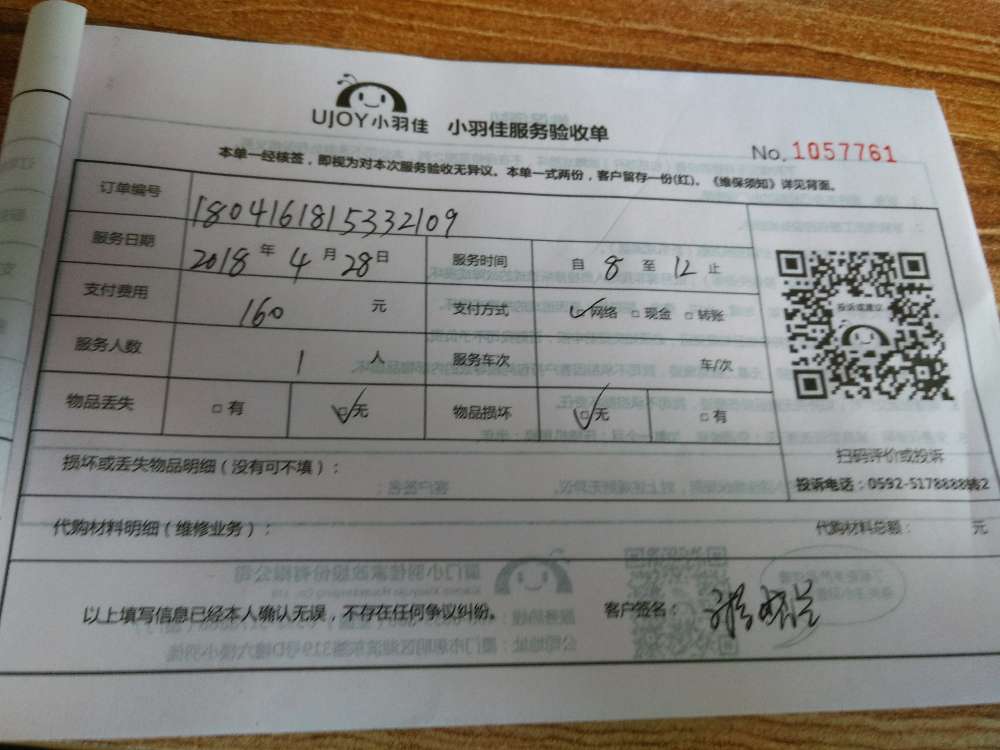 UJOY小羽佳 小羽佳服务验收单
No. 1057761
本单一经核签，即视为对本次服务验收无异议。本单一式两份，客户留存一份(红)。《维保须知》详见背面。
订单编号 1804161815332109
服务日期 2018 年 4 月 28 日 服务时间 自 8 至 12 止
支付费用 160 元 支付方式 ☑网络 □现金 □转账
投诉或建议
服务人数 1 人 服务车次 车/次
物品丢失 □有 ☑无 物品损坏 ☑无 □有
扫码评价或投诉
投诉电话：0592-5178888转2
损坏或丢失物品明细（没有可不填）：
代购材料明细（维修业务）： 代购材料总额： 元
以上填写信息已经本人确认无误，不存在任何争议纠纷。 客户签名：